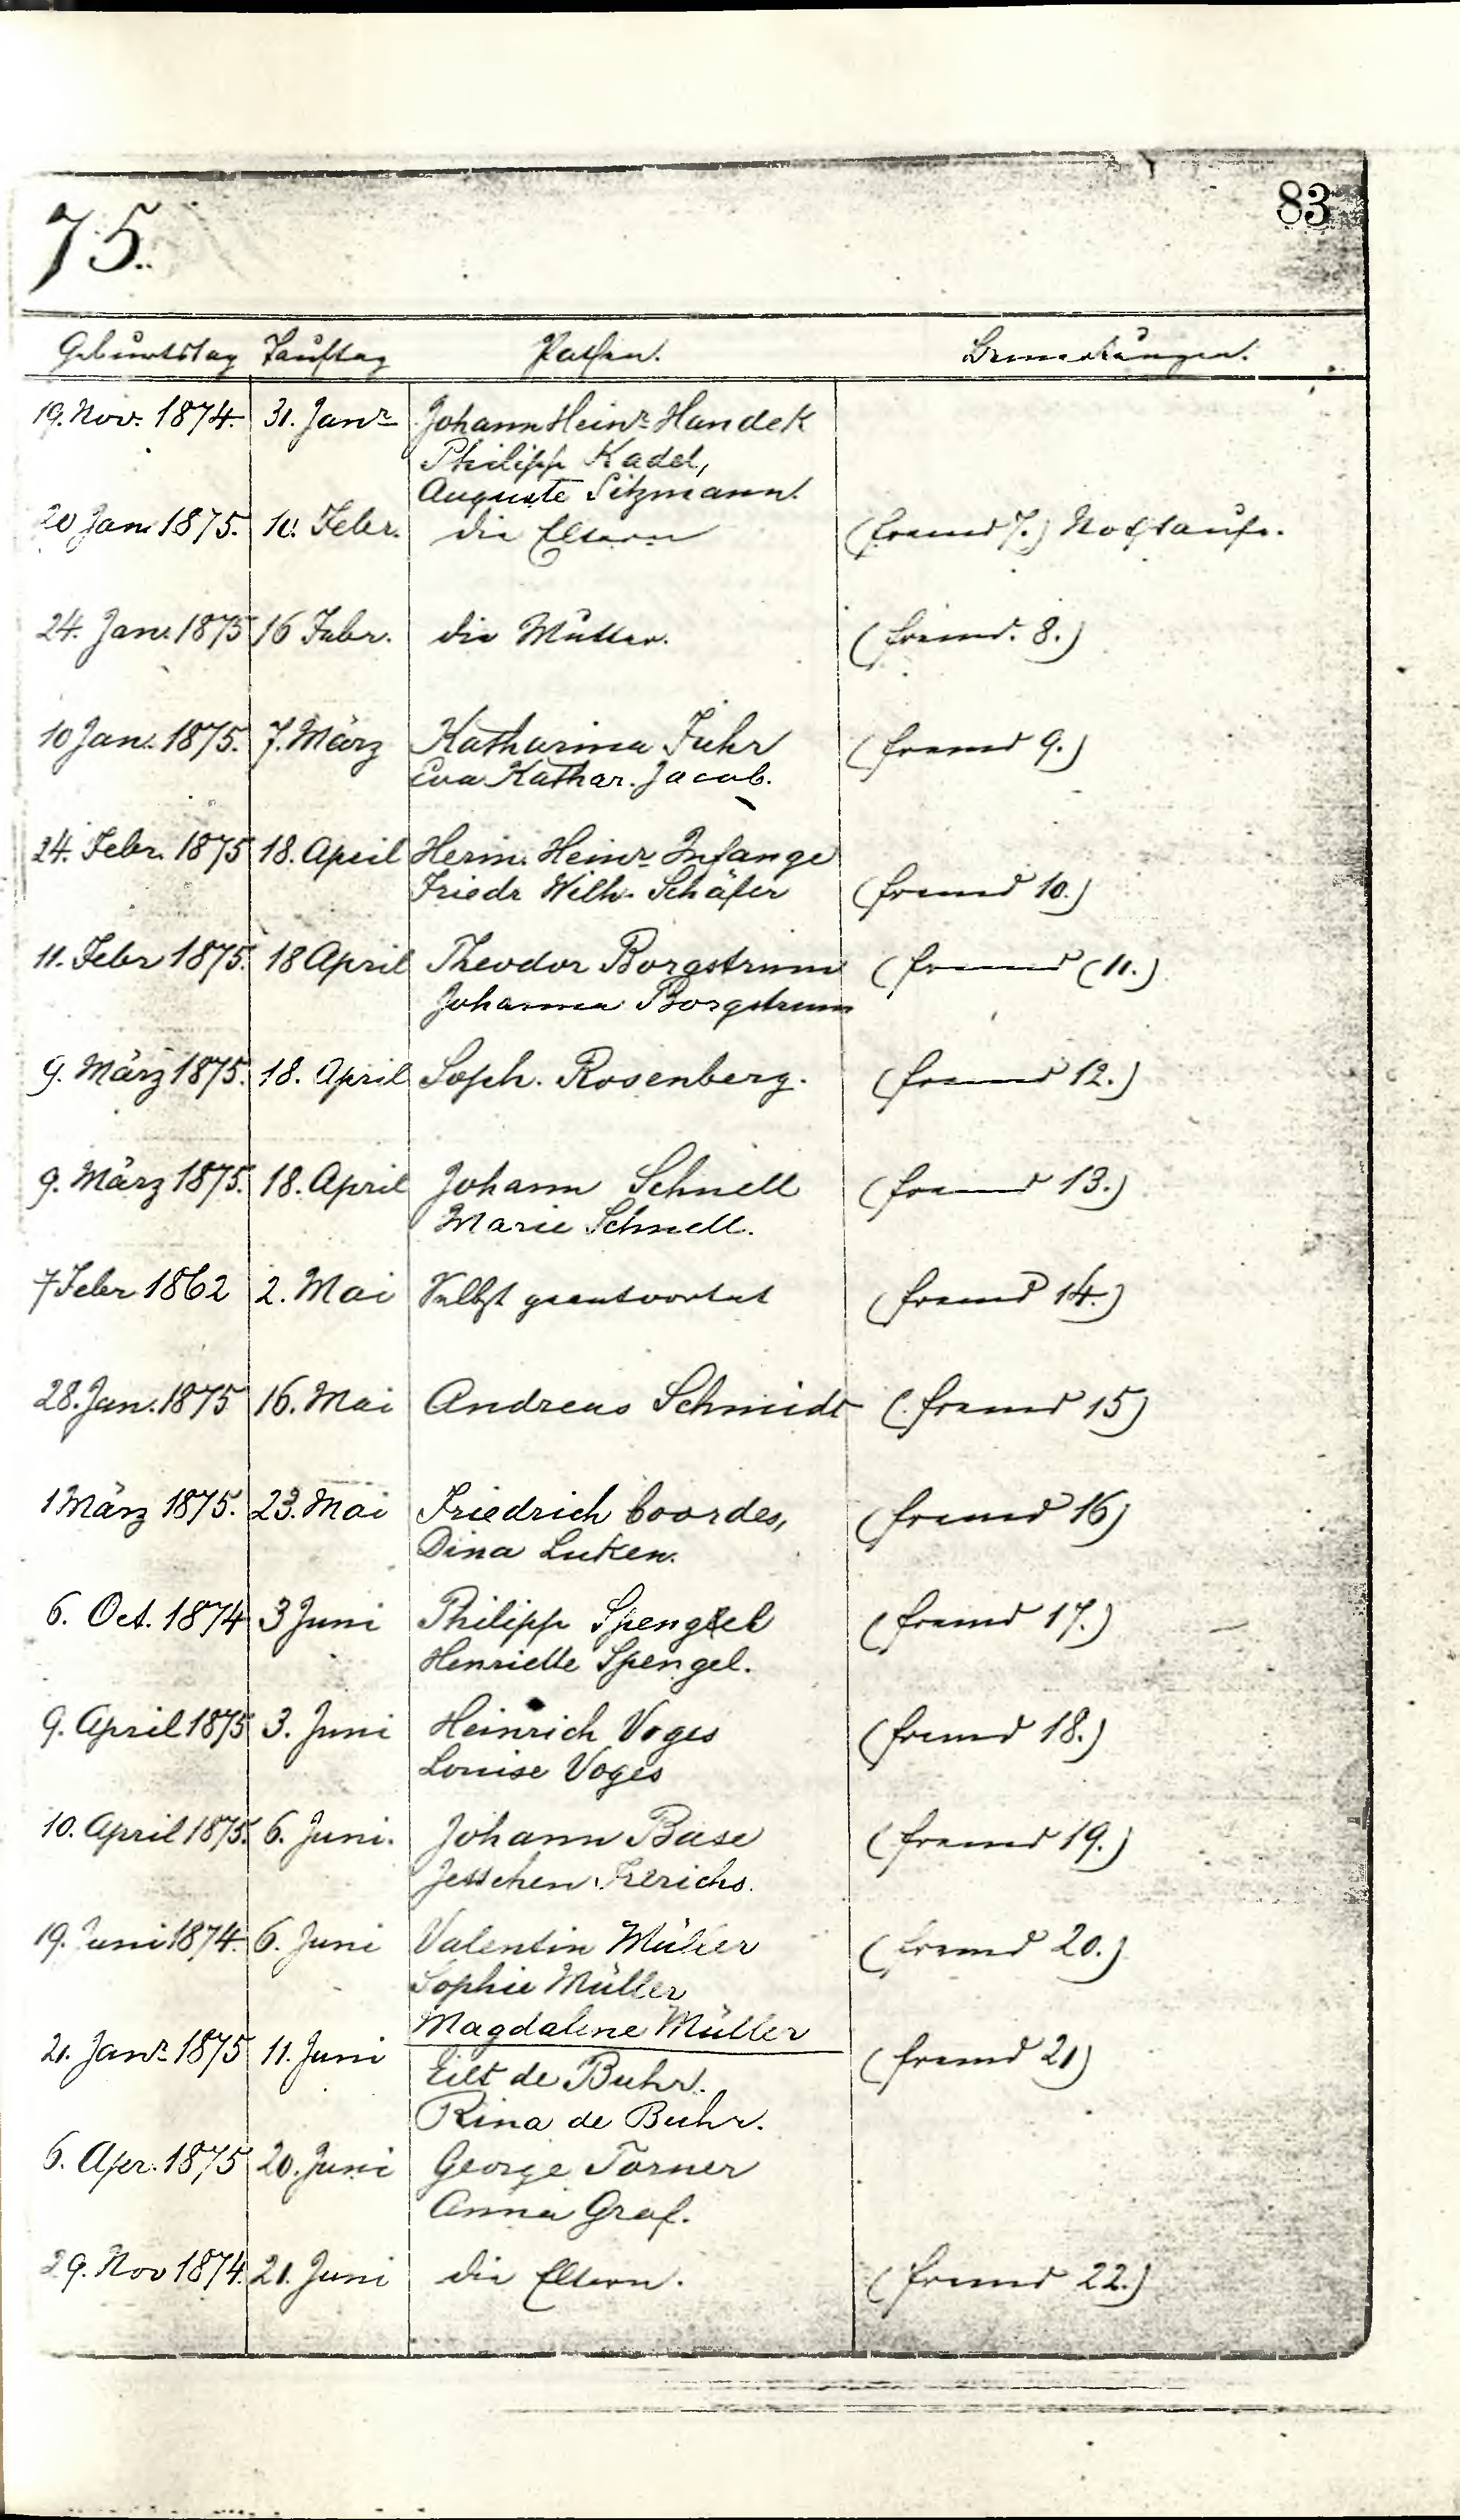 75.
83
Geburtstag Tauftag Pathen. Bemerkungen.
19. Nov. 1874. 31. Janr Johann Heinr Handek
Philipp Kadel,
Auguste Sitzmann.
20 Jan 1875. 10. Febr. die Eltern (fremd 7.) Nothtaufe.
24. Jan. 1875 16 Febr. die Mutter. (fremd. 8.)
10 Jan. 1875. 7. März Katharina Fuhr (fremd 9.)
Eva Kathar. Jacob.
24. Febr. 1875 18. April Herm. Heinr Infange
Friedr Wilh. Schäfer (fremd 10.)
11. Febr 1875. 18 April Theodor Borgstrum (fremd (11.)
Johanna Borgstrum
9. März 1875. 18. April Soph. Rosenberg. (fremd 12.)
9. März 1875. 18. April Johann Schnell (fremd 13.)
Marie Schnell.
7 Febr 1862 2. Mai Selbst geantwortet (fremd 14.)
28. Jan. 1875 16. Mai Andreas Schmidt (fremd 15)
1 März 1875. 23. Mai Friedrich Coordes, (fremd 16)
Dina Luken.
6. Oct. 1874 3 Juni Philipp Spengel (fremd 17.)
Henriette Spengel.
9. April 1875 3. Juni Heinrich Voges (fremd 18.)
Louise Voges
10. April 1875. 6. Juni. Johann Base (fremd 19.)
Jesschen Frerichs.
19. Juni 1874. 6. Juni Valentin Müller (fremd 20.)
Sophie Müller
Magdalene Müller
21. Janr 1875 11. Juni (fremd 21)
Eilt de Buhr.
Rina de Buhr.
6. Apr. 1875 20. Juni George Torner
Anna Graf.
29. Nov 1874. 21. Juni die Eltern. (fremd 22.)